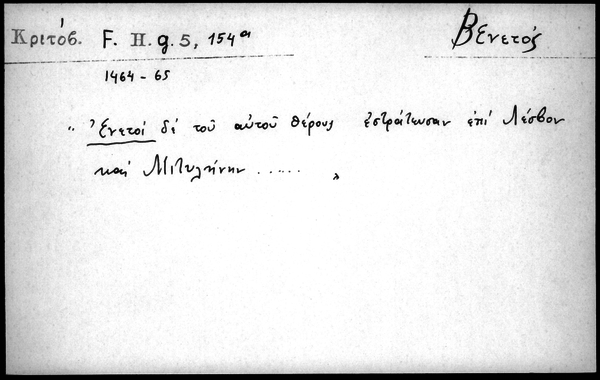 Κριτόβ. F. H. g. 5, 154α Βενετός
1464 - 65
" Ἐνετοί δέ τοῦ αὐτοῦ θέρους ἐστράτευσαν ἐπί Λέσβον
καί Μιτυλήνην ...... "